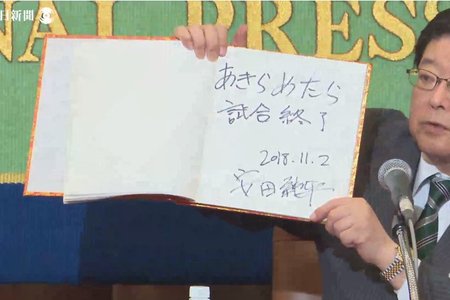 日新聞
NAL PRESS
あきらめたら
試合終了
2018.11.2
安田純平